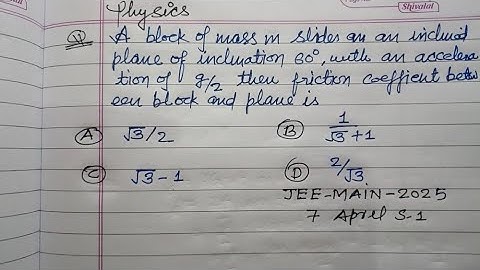 Physics
Shivalal
Q A block of mass m slides on an inclined
plane of inclination 60°, with an accelera
tion of g/2 then friction coeffient betw
een block and plane is
A √3/2
B 1/√3+1
C √3-1
D 2/√3
JEE-MAIN-2025
7 April S-1